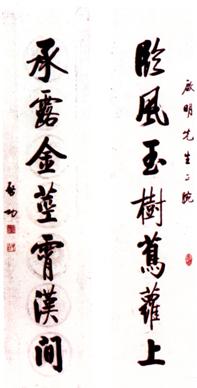 啟明先生
臨風玉樹蔦蘿上
承露金莖霄漢間
啟功